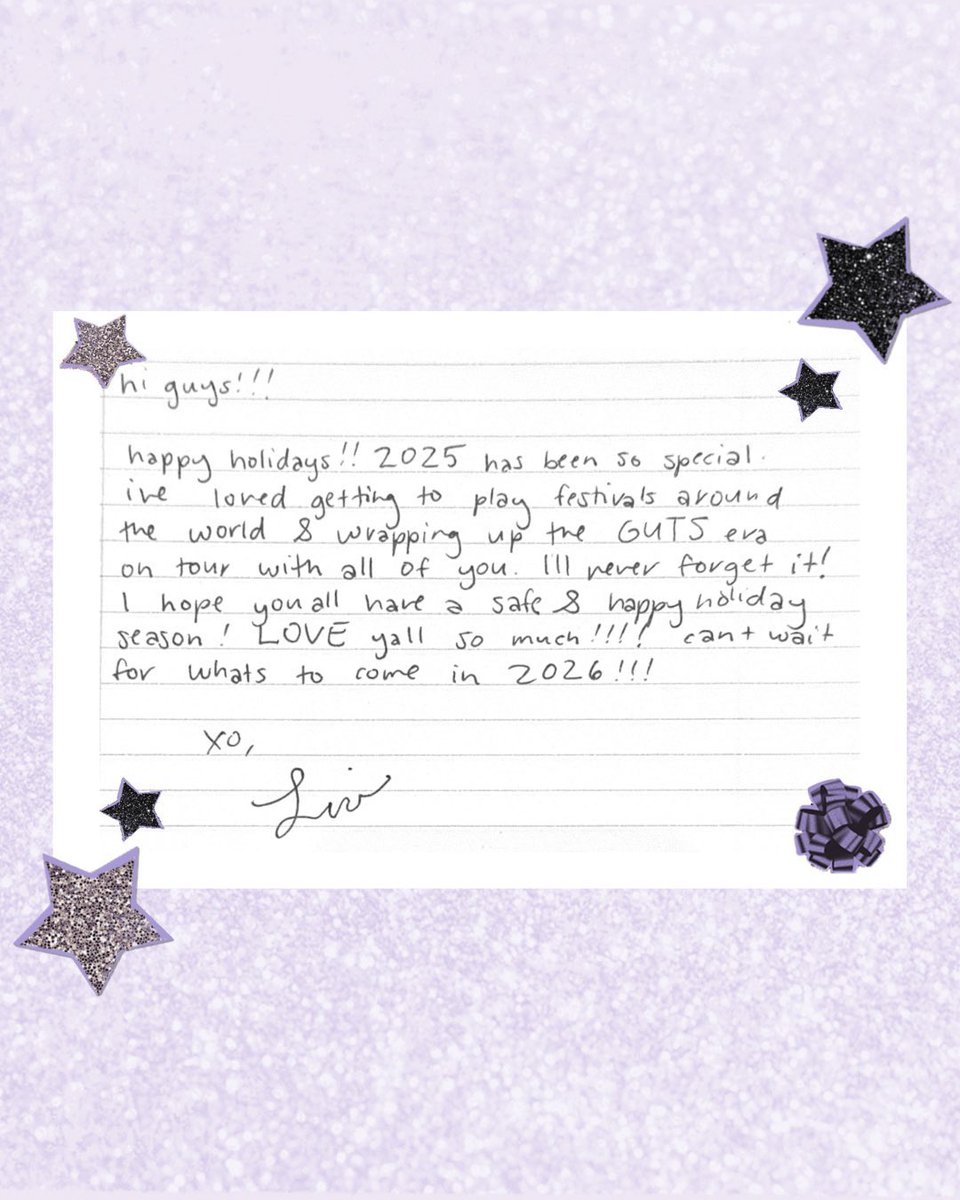 hi guys!!!
happy holidays!! 2025 has been so special.
ive loved getting to play festivals around
the world & wrapping up the GUTS era
on tour with all of you. I'll never forget it!
I hope you all have a safe & happy holiday
season! LOVE yall so much!!!! cant wait
for whats to come in 2026!!!
xo,
Livi